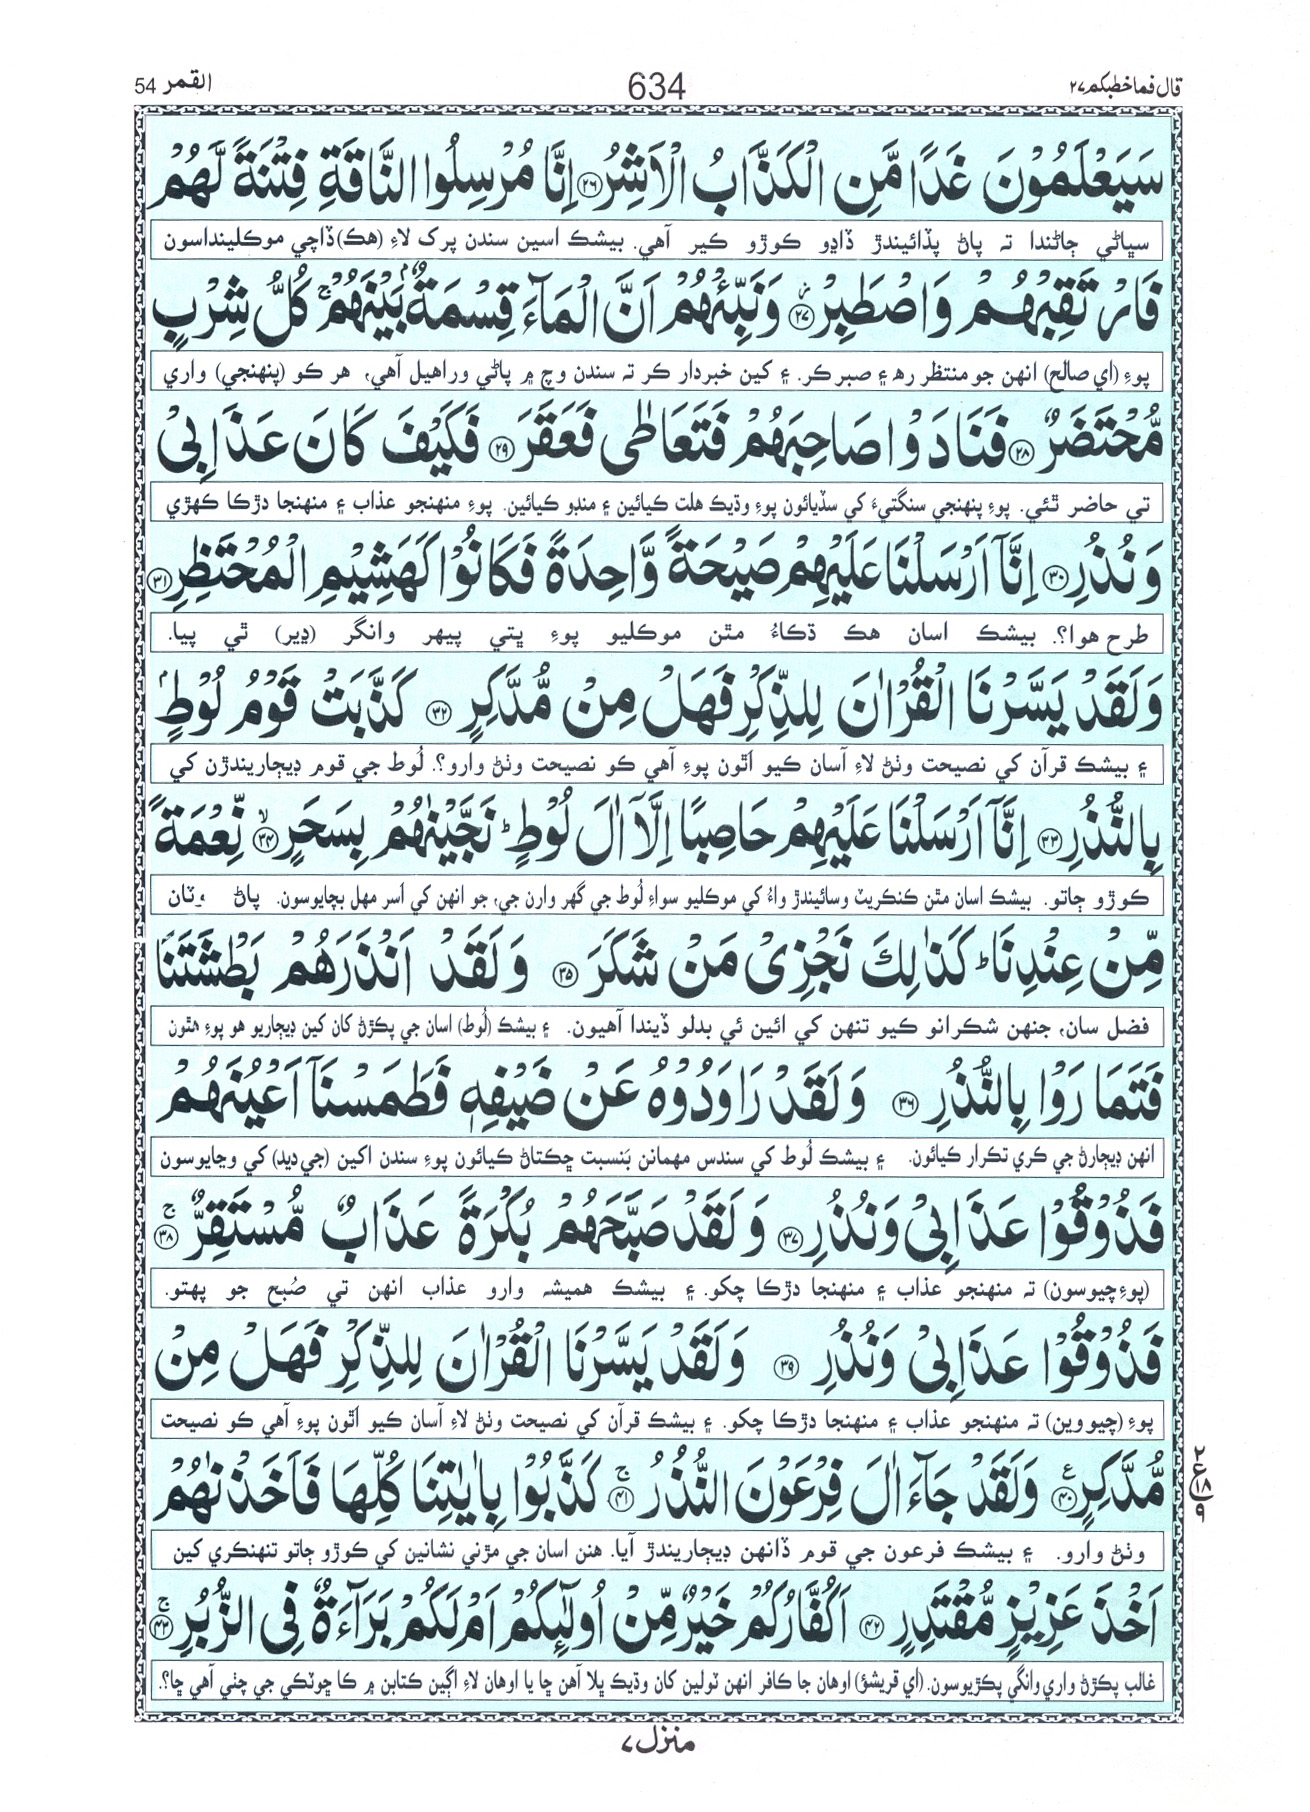 قال فماخطبكم ٢٧
634
القمر 54
سَيَعْلَمُوْنَ غَدًا مَّنِ الْكَذَّابُ الْاَشِرُ ٢٦ اِنَّا مُرْسِلُوا النَّاقَةِ فِتْنَةً لَّهُمْ
سڀاڻي ڄاڻندا تہ پاڻ پڏائيندڙ ڏاڍو ڪوڙو ڪير آهي. بيشڪ اسين سندن پرک لاءِ (هڪ) ڏاچي موڪلينداسون
فَارْتَقِبْهُمْ وَاصْطَبِرْ ٢٧ وَنَبِّئْهُمْ اَنَّ الْمَآءَ قِسْمَةٌۢ بَيْنَهُمْ ۚ كُلُّ شِرْبٍ
پوءِ (اي صالح) انهن جو منتظر رهہ ۽ صبر ڪر. ۽ کين خبردار ڪر تہ سندن وچ ۾ پاڻي ورهايل آهي، هر ڪو (پنهنجي) واري
مُّحْتَضَرٌ ٢٨ فَنَادَوْا صَاحِبَهُمْ فَتَعَاطٰى فَعَقَرَ ٢٩ فَكَيْفَ كَانَ عَذَابِيْ
تي حاضر ٿئي. پوءِ پنهنجي سنگتيءَ کي سڏيائون پوءِ وڌيڪ هلت ڪيائين ۽ منڊو ڪيائين. پوءِ منهنجو عذاب ۽ منهنجا دڙڪا ڪهڙي
وَنُذُرِ ٣٠ اِنَّآ اَرْسَلْنَا عَلَيْهِمْ صَيْحَةً وَّاحِدَةً فَكَانُوْا كَهَشِيْمِ الْمُحْتَظِرِ ٣١
طرح هوا؟. بيشڪ اسان هڪ ڌڪاءُ مٿن موڪليو پوءِ ڀتي پيهر وانگر (ڍير) ٿي پيا.
وَلَقَدْ يَسَّرْنَا الْقُرْاٰنَ لِلذِّكْرِ فَهَلْ مِنْ مُّدَّكِرٍ ٣٢ كَذَّبَتْ قَوْمُ لُوْطٍۭ
۽ بيشڪ قرآن کي نصيحت وٺڻ لاءِ آسان ڪيو اٿون پوءِ آهي ڪو نصيحت وٺڻ وارو؟. لُوط جي قوم ڊيڄاريندڙن کي
بِالنُّذُرِ ٣٣ اِنَّآ اَرْسَلْنَا عَلَيْهِمْ حَاصِبًا اِلَّآ اٰلَ لُوْطٍ ؕ نَجَّيْنٰهُمْ بِسَحَرٍ ٣٤ نِّعْمَةً
ڪوڙو ڄاتو. بيشڪ اسان مٿن ڪنڪريٽ وسائيندڙ واءُ کي موڪليو سواءِ لُوط جي گهر وارن جي، جو انهن کي اَسر مهل بچايوسون. پاڻ وٽان
مِّنْ عِنْدِنَا ؕ كَذٰلِكَ نَجْزِيْ مَنْ شَكَرَ ٣٥ وَلَقَدْ اَنْذَرَهُمْ بَطْشَتَنَا
فضل سان، جنهن شڪرانو ڪيو تنهن کي ائين ئي بدلو ڏيندا آهيون. ۽ بيشڪ (لُوط) اسان جي پڪڙڻ کان کين ڊيڄاريو هو پوءِ هنون
فَتَمَارَوْا بِالنُّذُرِ ٣٦ وَلَقَدْ رَاوَدُوْهُ عَنْ ضَيْفِهٖ فَطَمَسْنَآ اَعْيُنَهُمْ
انهن ڊيڄارڻ جي ڪري تڪرار ڪيائون. ۽ بيشڪ لُوط کي سندس مهمانن بَنسبت ڇڪتاڻ ڪيائون پوءِ سندن اکين (جي ديد) کي وڃايوسون
فَذُوْقُوْا عَذَابِيْ وَنُذُرِ ٣٧ وَلَقَدْ صَبَّحَهُمْ بُكْرَةً عَذَابٌ مُّسْتَقِرٌّ ۚ ٣٨
(پوءِ چيوسون) تہ منهنجو عذاب ۽ منهنجا دڙڪا چکو. ۽ بيشڪ هميشہ وارو عذاب انهن تي صُبح جو پهتو.
فَذُوْقُوْا عَذَابِيْ وَنُذُرِ ٣٩ وَلَقَدْ يَسَّرْنَا الْقُرْاٰنَ لِلذِّكْرِ فَهَلْ مِنْ
پوءِ (چيووين) تہ منهنجو عذاب ۽ منهنجا دڙڪا چکو. ۽ بيشڪ قرآن کي نصيحت وٺڻ لاءِ آسان ڪيو اٿون پوءِ آهي ڪو نصيحت
مُّدَّكِرٍ ٤٠ وَلَقَدْ جَآءَ اٰلَ فِرْعَوْنَ النُّذُرُ ۚ ٤١ كَذَّبُوْا بِاٰيٰتِنَا كُلِّهَا فَاَخَذْنٰهُمْ
وٺڻ وارو. ۽ بيشڪ فرعون جي قوم ڏانهن ڊيڄاريندڙ آيا. هنن اسان جي مڙني نشانين کي ڪوڙو ڄاتو تنهنڪري کين
اَخْذَ عَزِيْزٍ مُّقْتَدِرٍ ٤٢ اَكُفَّارُكُمْ خَيْرٌ مِّنْ اُولٰٓئِكُمْ اَمْ لَكُمْ بَرَآءَةٌ فِي الزُّبُرِ ۚ ٤٣
غالب پڪڙڻ واري وانگي پڪڙيوسون. (اي قريشؤ) اوهان جا ڪافر انهن ٽولين کان وڌيڪ ڀلا آهن ڇا يا اوهان لاءِ اڳين ڪتابن ۾ ڪا ڇوٽڪي جي چٺي آهي ڇا؟.
منزل ٧